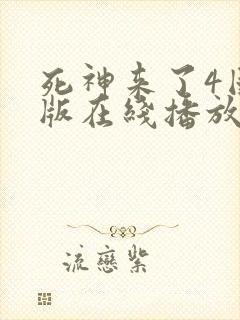 死神来了4国
版在线播放
流恋紫